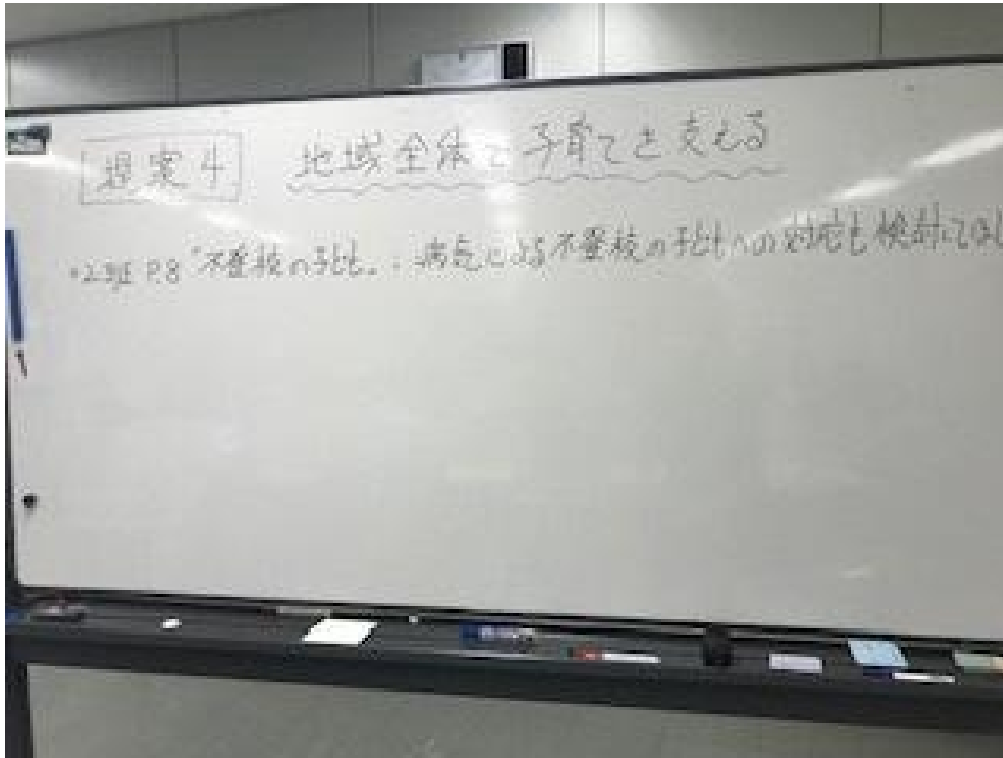 提案4 地域全体で子育てを支える
P.8 "不登校の子ども"：病気による不登校の子どもへの対応も検討してほし